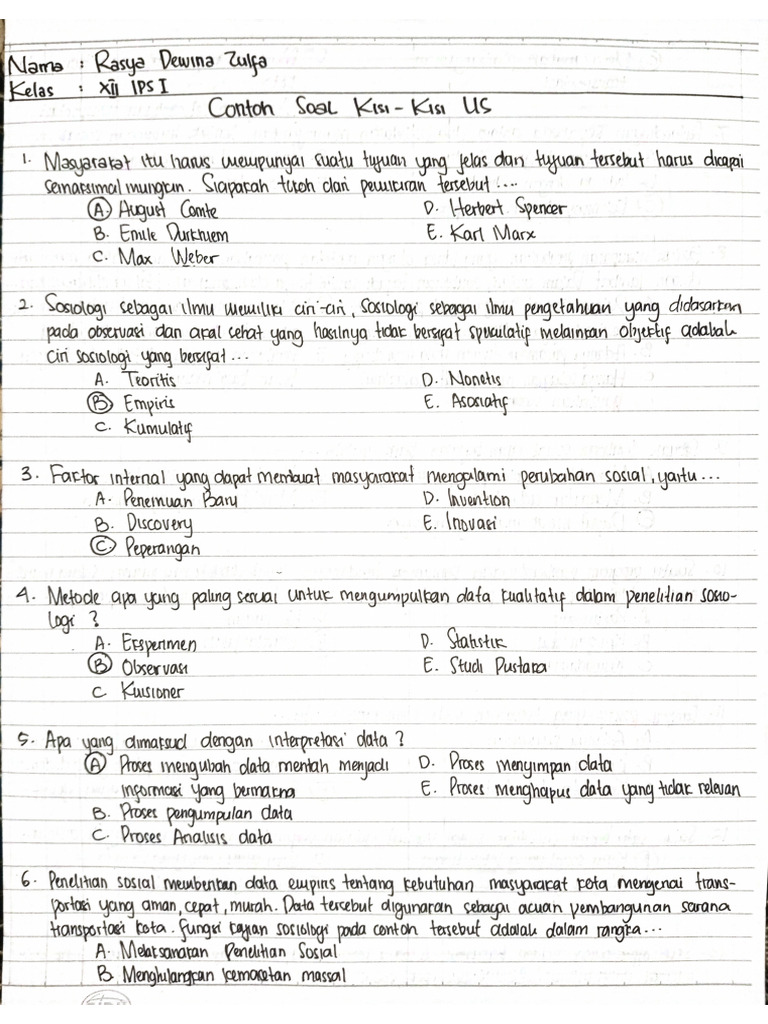 Nama : Rasya Dewina Zulfa
Kelas : XII IPS I
Contoh Soal Kisi-Kisi US
1. Masyarakat itu harus mempunyai suatu tujuan yang jelas dan tujuan tersebut harus dicapai
semaksimal mungkin. Siapakah tokoh dari pemikiran tersebut....
A. August Comte
D. Herbert Spencer
B. Emile Durkhiem
E. Karl Marx
C. Max Weber
2. Sosiologi sebagai ilmu memiliki ciri-ciri, Sosiologi sebagai ilmu pengetahuan yang didasarkan
pada observasi dan akal sehat yang hasilnya tidak bersifat spekulatif melainkan objektif adalah
ciri sosiologi yang bersifat...
A. Teoritis
D. Nonetis
B. Empiris
E. Asosiatif
C. Kumulatif
3. Faktor internal yang dapat membuat masyarakat mengalami perubahan sosial, yaitu...
A. Penemuan Baru
D. Invention
B. Discovery
E. Inovasi
C. Peperangan
4. Metode apa yang paling sesuai untuk mengumpulkan data kualitatif dalam penelitian sosio-
logi ?
A. Eksperimen
D. Statistik
B. Observasi
E. Studi Pustaka
C Kuisioner
5. Apa yang dimaksud dengan interpretasi data ?
A Proses mengubah data mentah menjadi
D. Proses menyimpan data
informasi yang bermakna
E. Proses menghapus data yang tidak relevan
B. Proses pengumpulan data
C. Proses Analisis data
6. Penelitian sosial memberikan data empiris tentang kebutuhan masyarakat kota mengenai trans-
portasi yang aman, cepat, murah. Data tersebut digunakan sebagai acuan pembangunan sarana
transportasi kota. Fungsi kajian sosiologi pada contoh tersebut adalah dalam rangka...
A. Melaksanakan Penelitian Sosial
B. Menghilangkan kemacetan massal